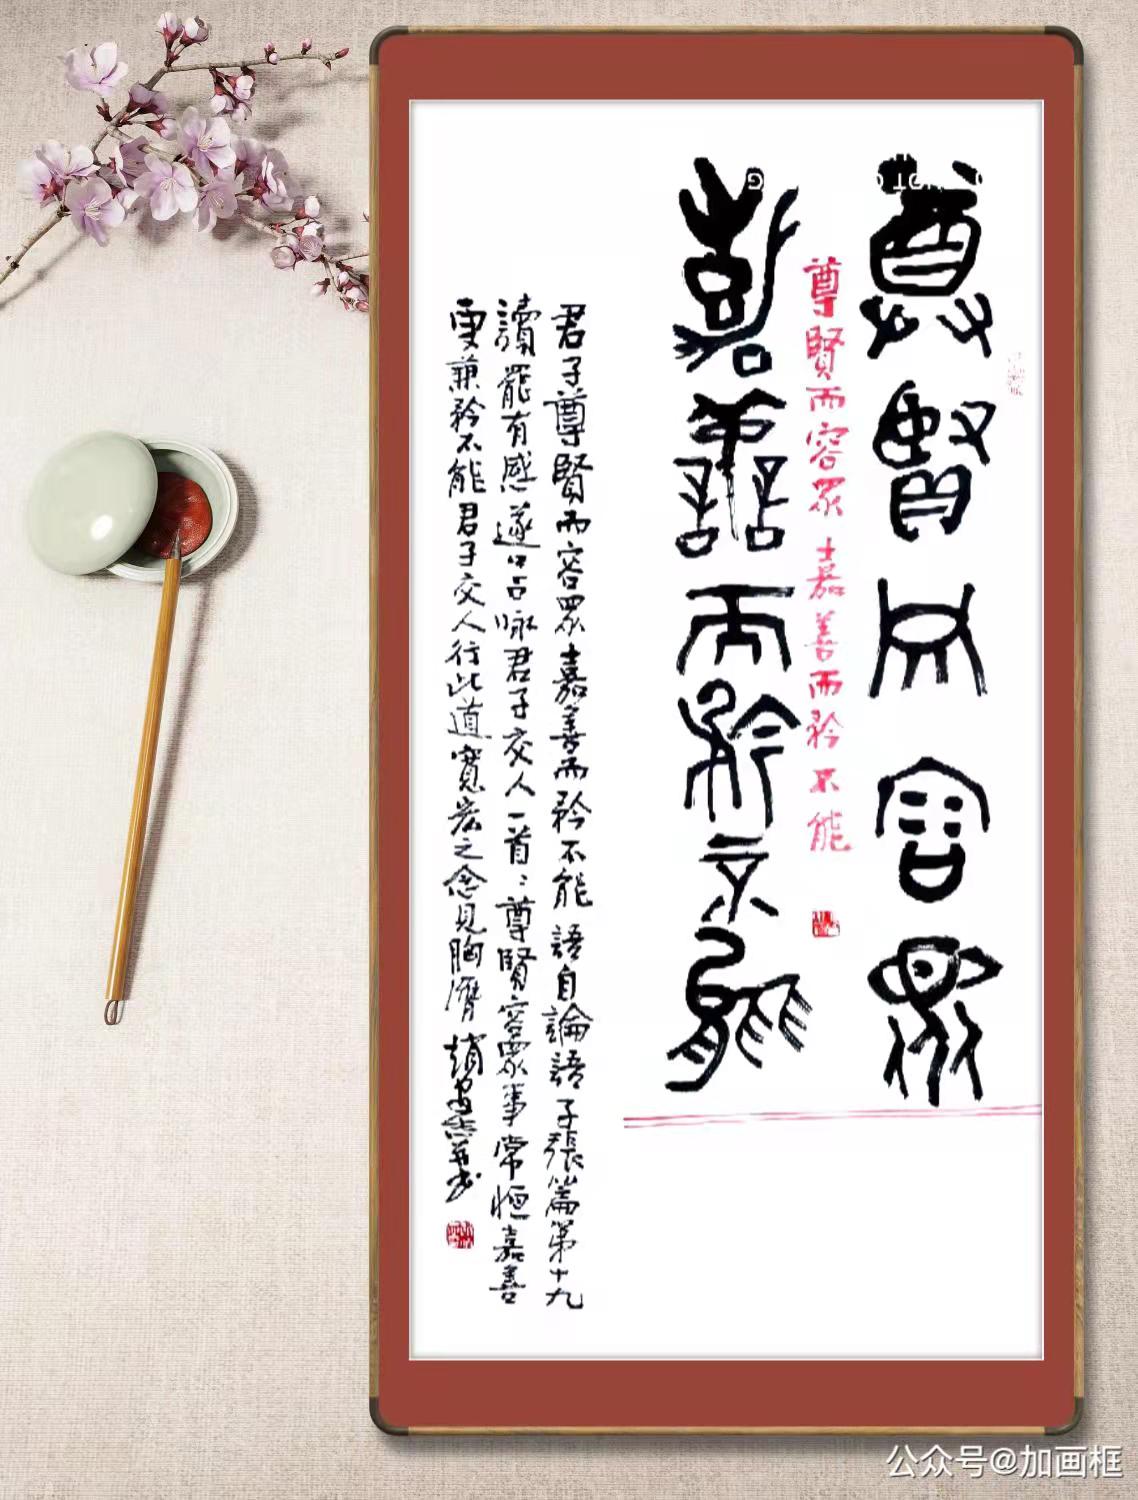 尊賢而容眾
嘉善而矜不能
尊賢而容眾 嘉善而矜不能
君子尊賢而容眾嘉善而矜不能 語自論語子張篇第十九
讀罷有感遂口占咏君子交人一首：尊賢容眾事常恒嘉善
更兼矜不能君子交人行此道寬宏之念見胸膺 趙
公众号@加画框